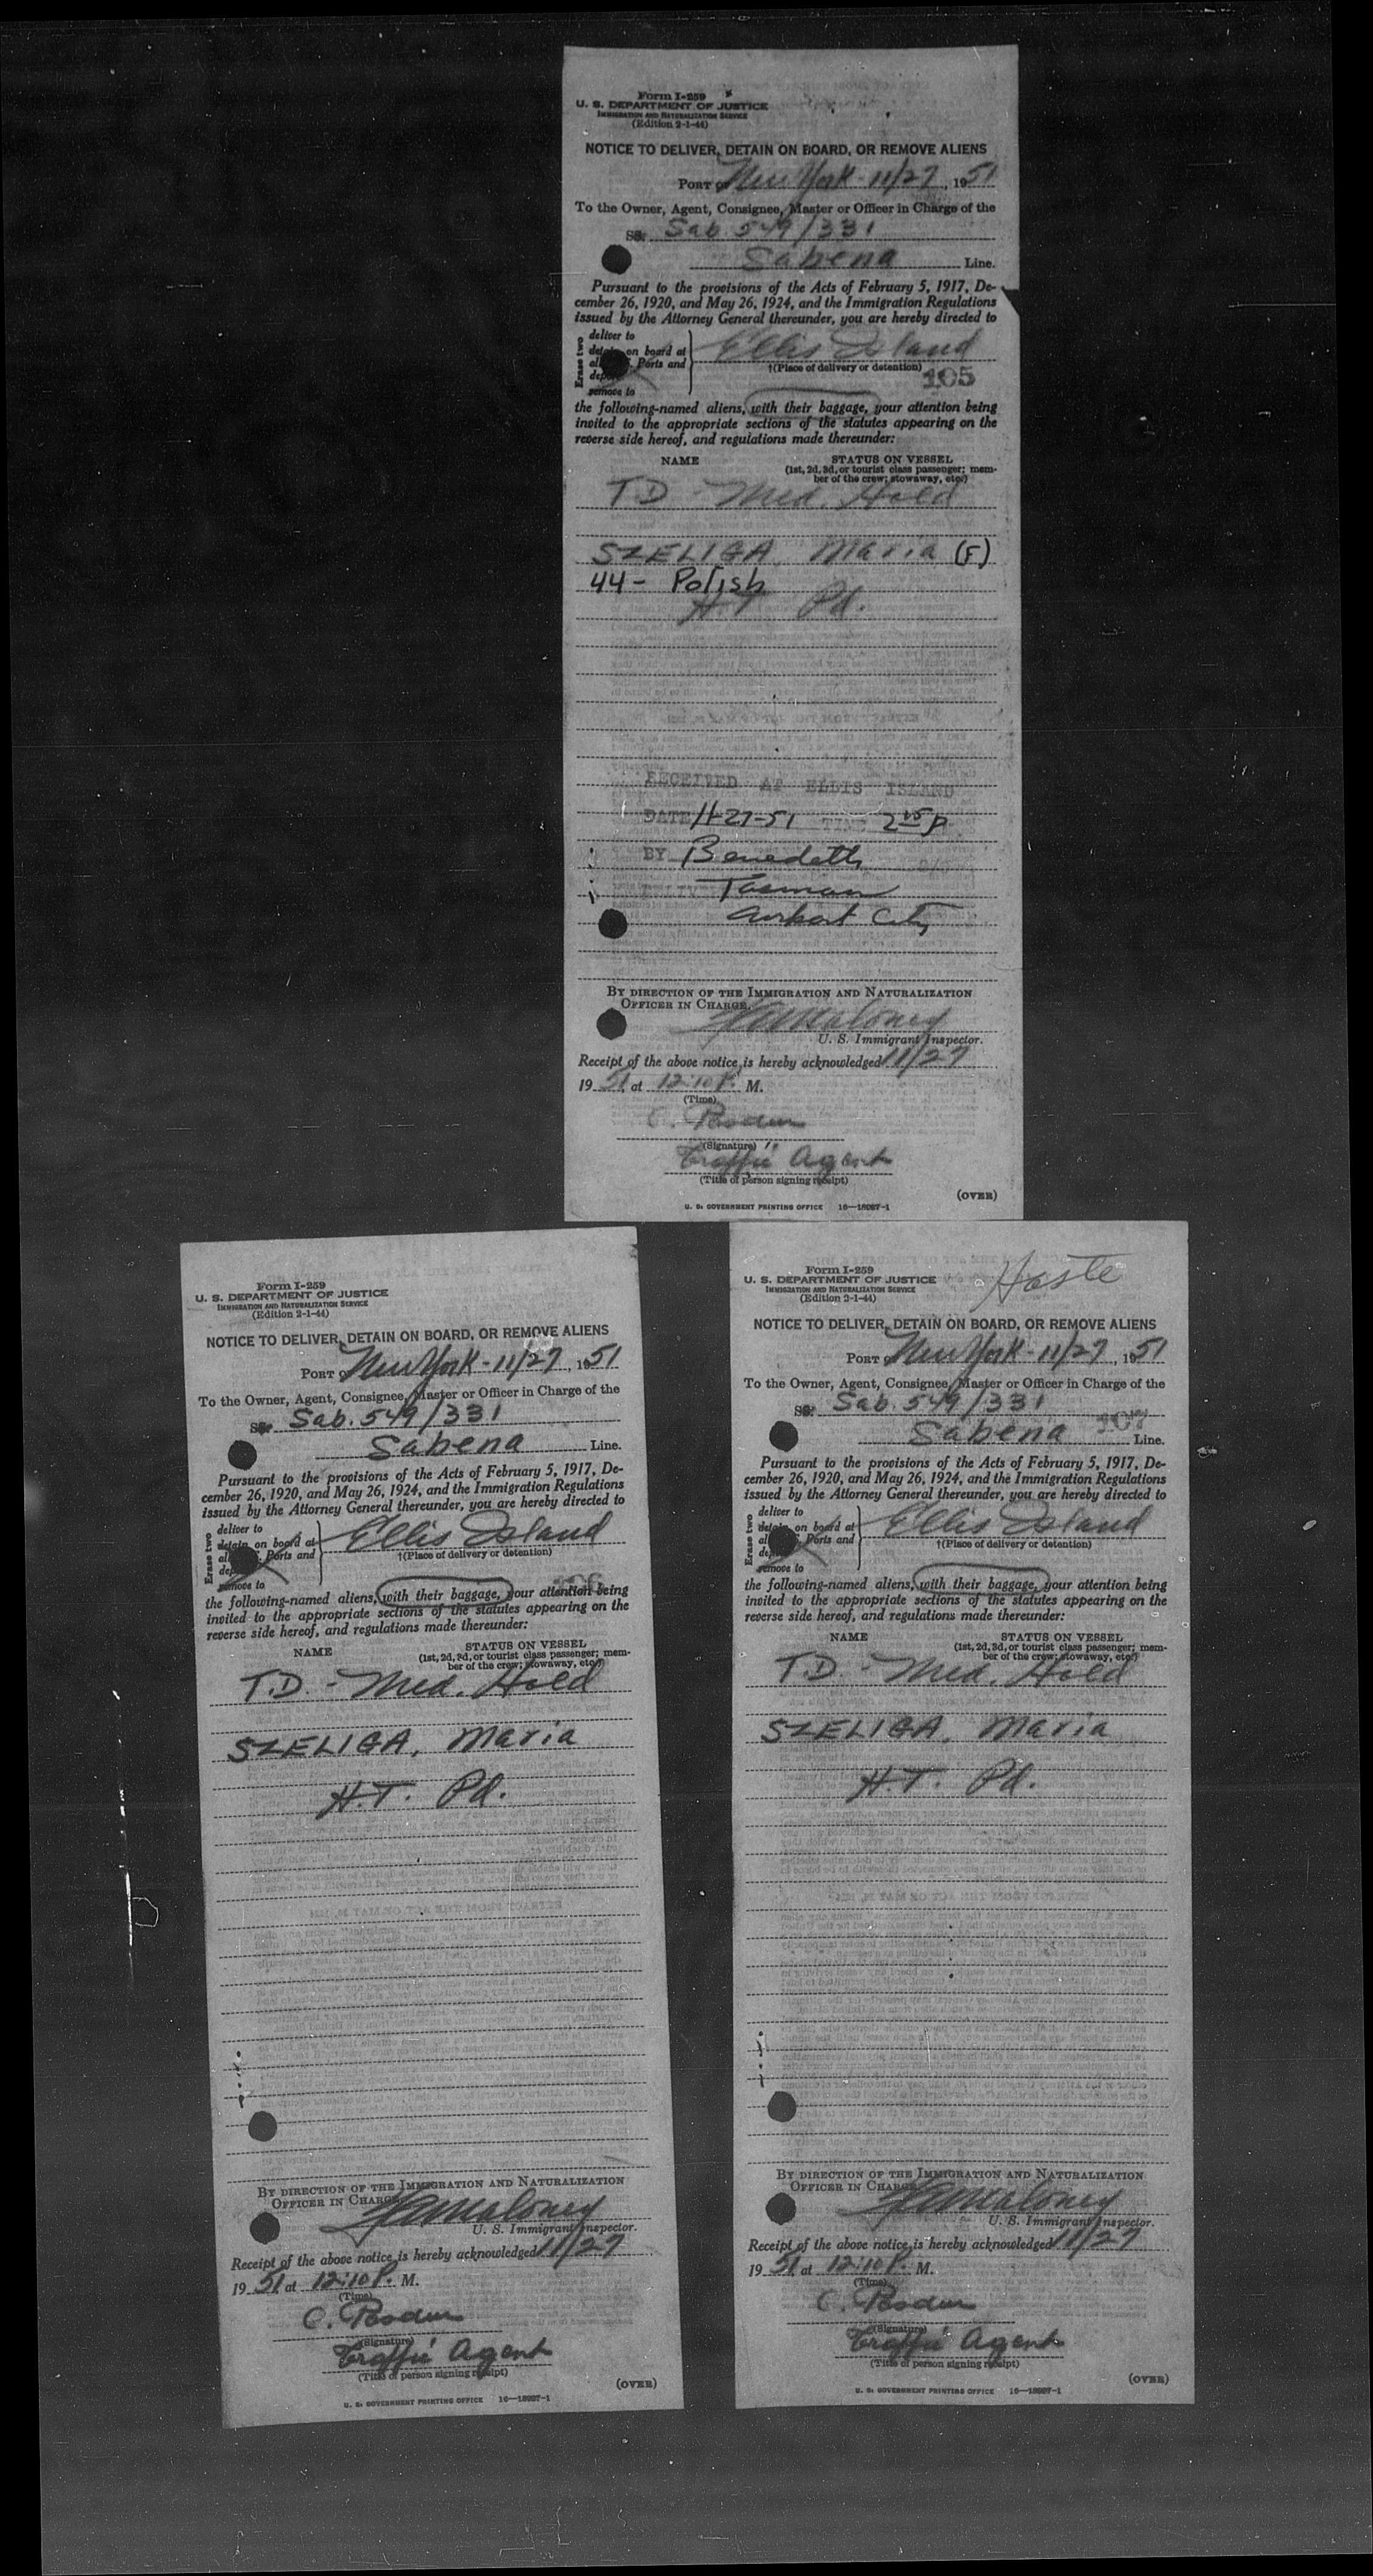 Form I-259
U. S. DEPARTMENT OF JUSTICE
IMMIGRATION AND NATURALIZATION SERVICE
(Edition 2-1-44)
NOTICE TO DELIVER, DETAIN ON BOARD, OR REMOVE ALIENS
PORT of New York - 11/27, 1951
To the Owner, Agent, Consignee, Master or Officer in Charge of the
SS. Sab. 549/331
Sabena Line.
Pursuant to the provisions of the Acts of February 5, 1917, De-
cember 26, 1920, and May 26, 1924, and the Immigration Regulations
issued by the Attorney General thereunder, you are hereby directed to
Erase two
deliver to
detain on board at
Ports and
remove to
Ellis Island
†(Place of delivery or detention)
105
the following-named aliens, with their baggage, your attention being
invited to the appropriate sections of the statutes appearing on the
reverse side hereof, and regulations made thereunder:
NAME STATUS ON VESSEL
(1st, 2d, 3d, or tourist class passenger; mem-
ber of the crew; stowaway, etc.)
T.D - Med. Hold
SZELIGA, Maria (F)
44 - Polish
HT Pd.
RECEIVED AT ELLIS ISLAND
DATE 11-27-51 TIME 2 15 P
BY Benedetti
Airport City
BY DIRECTION OF THE IMMIGRATION AND NATURALIZATION
OFFICER IN CHARGE.
Maloney
U. S. Immigrant Inspector.
Receipt of the above notice is hereby acknowledged 11/27
1951 at 12:10 P. M.
(Time)
C.
(Signature)
Traffic Agent
(Title of person signing receipt)
(OVER)
U. S. GOVERNMENT PRINTING OFFICE 16—18987-1
Form I-259
U. S. DEPARTMENT OF JUSTICE
IMMIGRATION AND NATURALIZATION SERVICE
(Edition 2-1-44)
NOTICE TO DELIVER, DETAIN ON BOARD, OR REMOVE ALIENS
PORT of New York - 11/27, 1951
To the Owner, Agent, Consignee, Master or Officer in Charge of the
SS. Sab. 549/331
Sabena Line.
Pursuant to the provisions of the Acts of February 5, 1917, De-
cember 26, 1920, and May 26, 1924, and the Immigration Regulations
issued by the Attorney General thereunder, you are hereby directed to
Erase two
deliver to
detain on board at
Ports and
remove to
Ellis Island
†(Place of delivery or detention)
106
the following-named aliens, with their baggage, your attention being
invited to the appropriate sections of the statutes appearing on the
reverse side hereof, and regulations made thereunder:
NAME STATUS ON VESSEL
(1st, 2d, 3d, or tourist class passenger; mem-
ber of the crew; stowaway, etc.)
T.D. - Med. Hold
SZELIGA, Maria
H.T. Pd.
BY DIRECTION OF THE IMMIGRATION AND NATURALIZATION
OFFICER IN CHARGE.
Maloney
U. S. Immigrant Inspector.
Receipt of the above notice is hereby acknowledged 11/27
1951 at 12:10 P. M.
(Time)
C.
(Signature)
Traffic Agent
(Title of person signing receipt)
(OVER)
U. S. GOVERNMENT PRINTING OFFICE 16—18987-1
Form I-259
U. S. DEPARTMENT OF JUSTICE
IMMIGRATION AND NATURALIZATION SERVICE
(Edition 2-1-44)
NOTICE TO DELIVER, DETAIN ON BOARD, OR REMOVE ALIENS
PORT of New York - 11/27, 1951
To the Owner, Agent, Consignee, Master or Officer in Charge of the
SS. Sab. 549/331
107
Sabena Line.
Pursuant to the provisions of the Acts of February 5, 1917, De-
cember 26, 1920, and May 26, 1924, and the Immigration Regulations
issued by the Attorney General thereunder, you are hereby directed to
Erase two
deliver to
detain on board at
Ports and
remove to
Ellis Island
†(Place of delivery or detention)
the following-named aliens, with their baggage, your attention being
invited to the appropriate sections of the statutes appearing on the
reverse side hereof, and regulations made thereunder:
NAME STATUS ON VESSEL
(1st, 2d, 3d, or tourist class passenger; mem-
ber of the crew; stowaway, etc.)
T.D. - Med. Hold
SZELIGA, Maria
H.T. Pd.
BY DIRECTION OF THE IMMIGRATION AND NATURALIZATION
OFFICER IN CHARGE.
Maloney
U. S. Immigrant Inspector.
Receipt of the above notice is hereby acknowledged 11/27
1951 at 12:10 P. M.
(Time)
C.
(Signature)
Traffic Agent
(Title of person signing receipt)
(OVER)
U. S. GOVERNMENT PRINTING OFFICE 16—18987-1